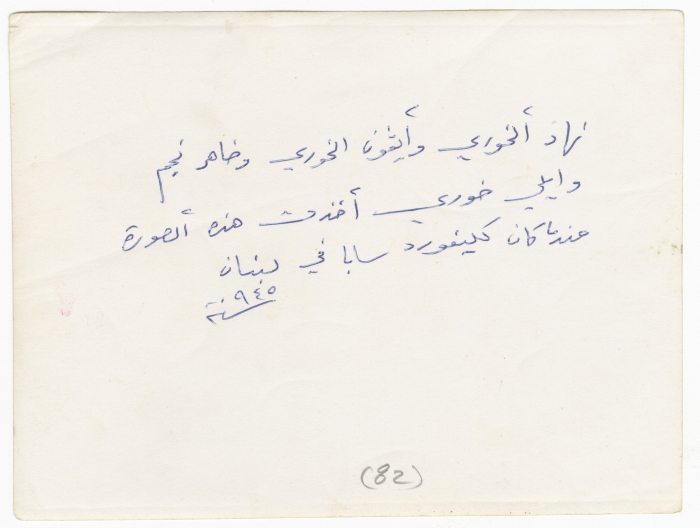 نهاد ألخوري وأيڤون الخوري وضاهر نجيم
وايلي خوري أخذت هذه ألصورة
عندما كان كليفورد سابا في لبنان
سنة ٩٤٥
(82)